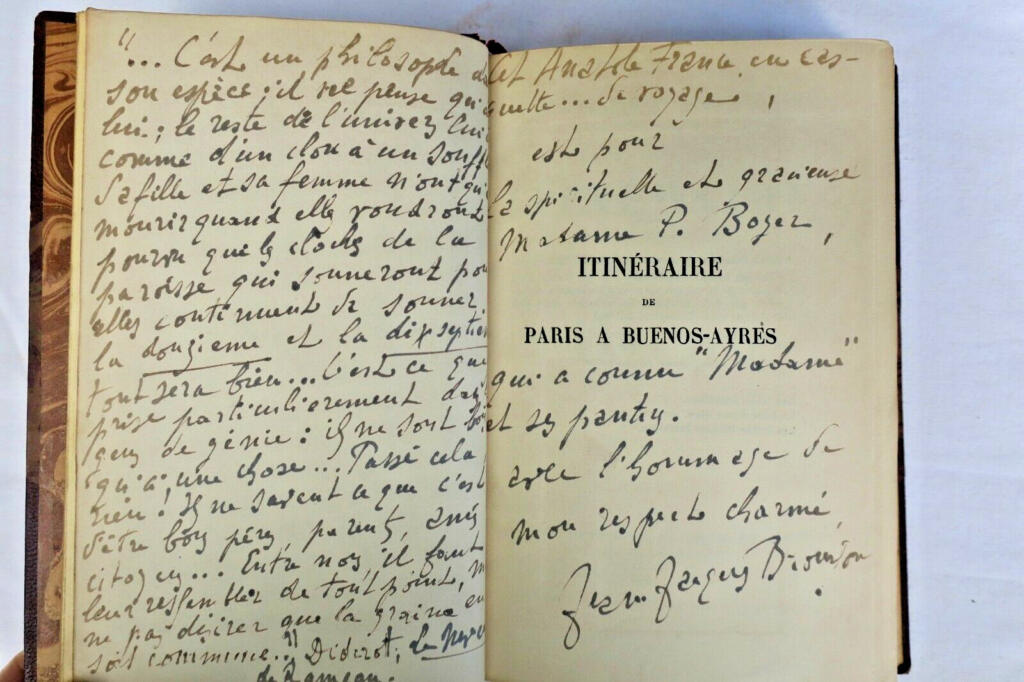 "... C'est un philosophe d
son espèce ; il ne pense qu'à
lui ; le reste de l'univers lui
comme d'un clou à un souff
Sa fille et sa femme n'ont qu'
mourir quand elle voudront
pourvu que les cloches de la
paroisse qui sonneront pou
elles continuent de sonner
la douzieme et la dixseptiem
tout sera bien... C'est ce que
prise particulierement dans
gens de génie : ils ne sont bo
qu'à une chose... Passé cela
rien ! Ils ne savent ce que c'est
d'être bons pères, parents, amis
citoyens... Entre nous, il faut
leur ressembler de tout point, m
ne pas désirer que la graine en
soit commune.." Diderot, Le Neveu
de Rameau.
Cet Anatole France en cas-
quette... de voyage,
est pour
la spirituelle et gracieuse
Madame P. Boyer,
ITINÉRAIRE
DE
PARIS A BUENOS-AYRES
qui a connu "Madame"
et ses pantins.
avec l'hommage de
mon respect charmé,
Jean-Jacques Brousson